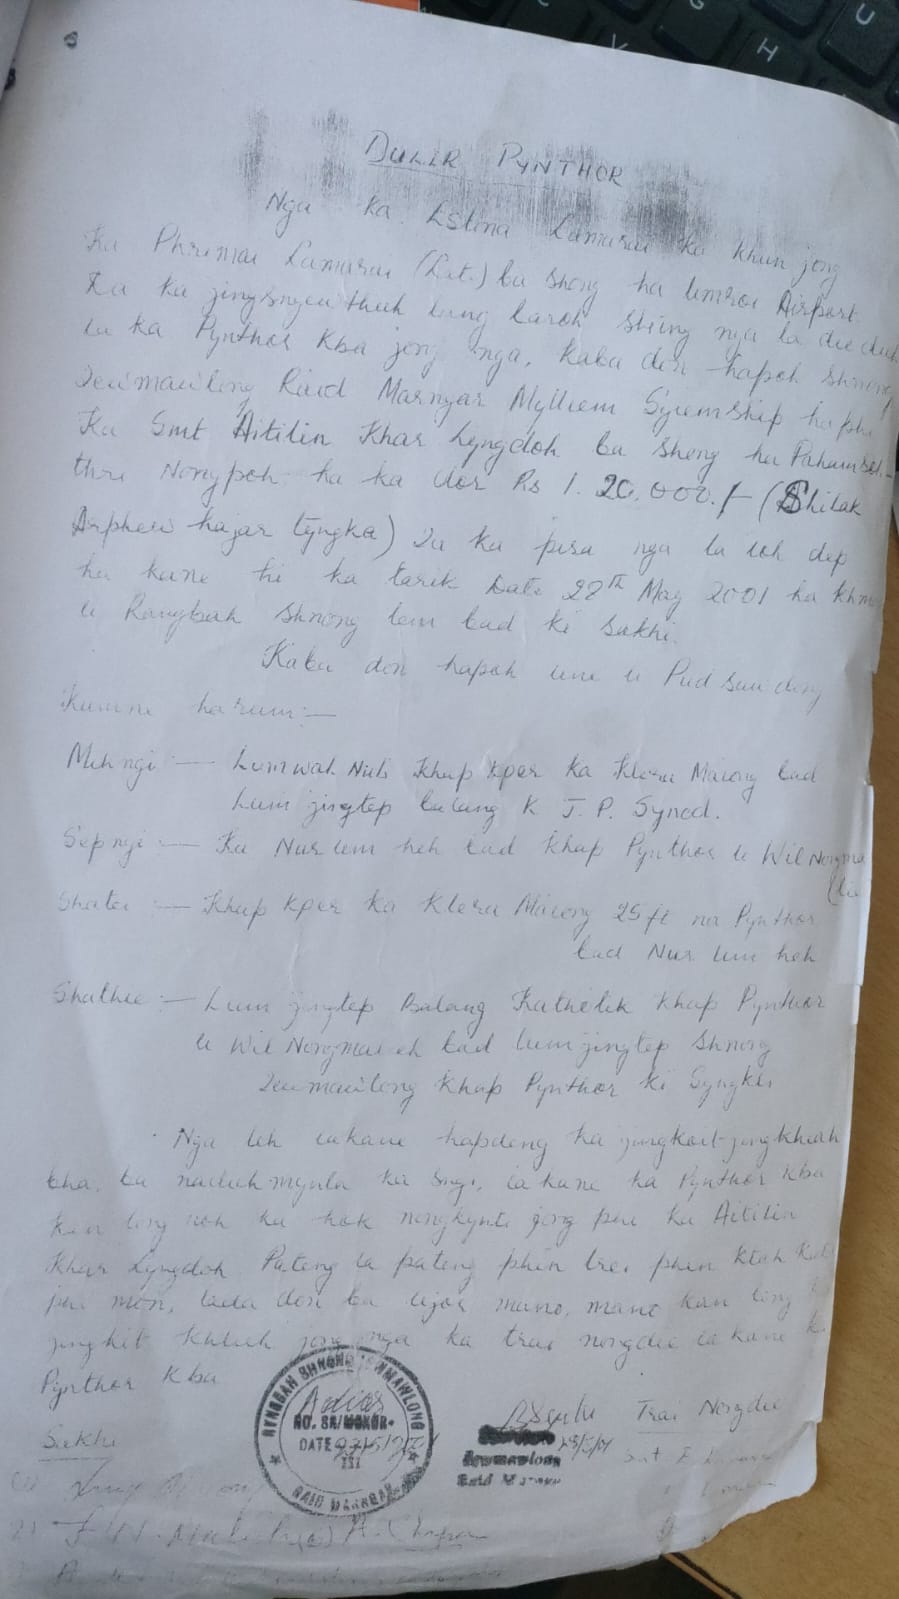 DULIR PYNTHOR
Nga ka Estina Lamarai ka khun jong
Ka Phrimai Lamarai (Lat.) ba shong ha Umroi Airport
Da ka jingsngewthuh lang baroh shiing nga la die duh
ia ka Pynthor Kba jong nga, kaba don hapoh shnong
Iewmawlong Raid Marngar Mylliem Syiemship ha phi
Ka Smt Aitilin Khar Lyngdoh ba shong ha Pahamsoh-
thri Nongpoh ha ka dor Rs 1.20.000./- (Shilak
Arphew hajar tyngka) Ia ka pisa nga la ioh dep
ha kane hi ka tarik Date 28th May 2001 ha khmat
u Rangbah Shnong lem bad ki sakhi.
Kaba don hapoh une u Pud saw dong
Kumne harum:-
Mihngi :- Lumwah Nub Khap Kper ka Klera Mawng bad
Lum jingtep balang K J. P. Synod.
Sepngi :- Ka Nur lum heh bad Khap Pynthor u Wil Nongma
Shatei :- Khap Kper ka Klera Mawng 25 ft na Pynthor
bad Nur lum heh
Shathie :- Lum jingtep Balang Katholik Khap Pynthor
u Wil Nongmaieh bad lum jingtep Shnong
Iewmawlong Khap Pynthor ki Syngkli
Nga leh iakane hapdeng ka jingkoit-jingkhiah
bha, ba naduh mynta ka sngi, ia kane ka Pynthor Kba
kan long noh ka hok nongkynti jong phi ka Aitilin
Khar Lyngdoh. Pateng ia pateng phin trei phin ktah kat
phi mon, lada don ba ujor mano, mano kan long
jingkit khlieh jong nga ka trai nongdie ia kane ka
Pynthor Kba
RYNGBAH SHNONG IEWMAWLONG
NO. SR/
DATE
RAID MARNGAR
Trai Nongdie
28/5/01
Iewmawlong
Raid
Sakhi